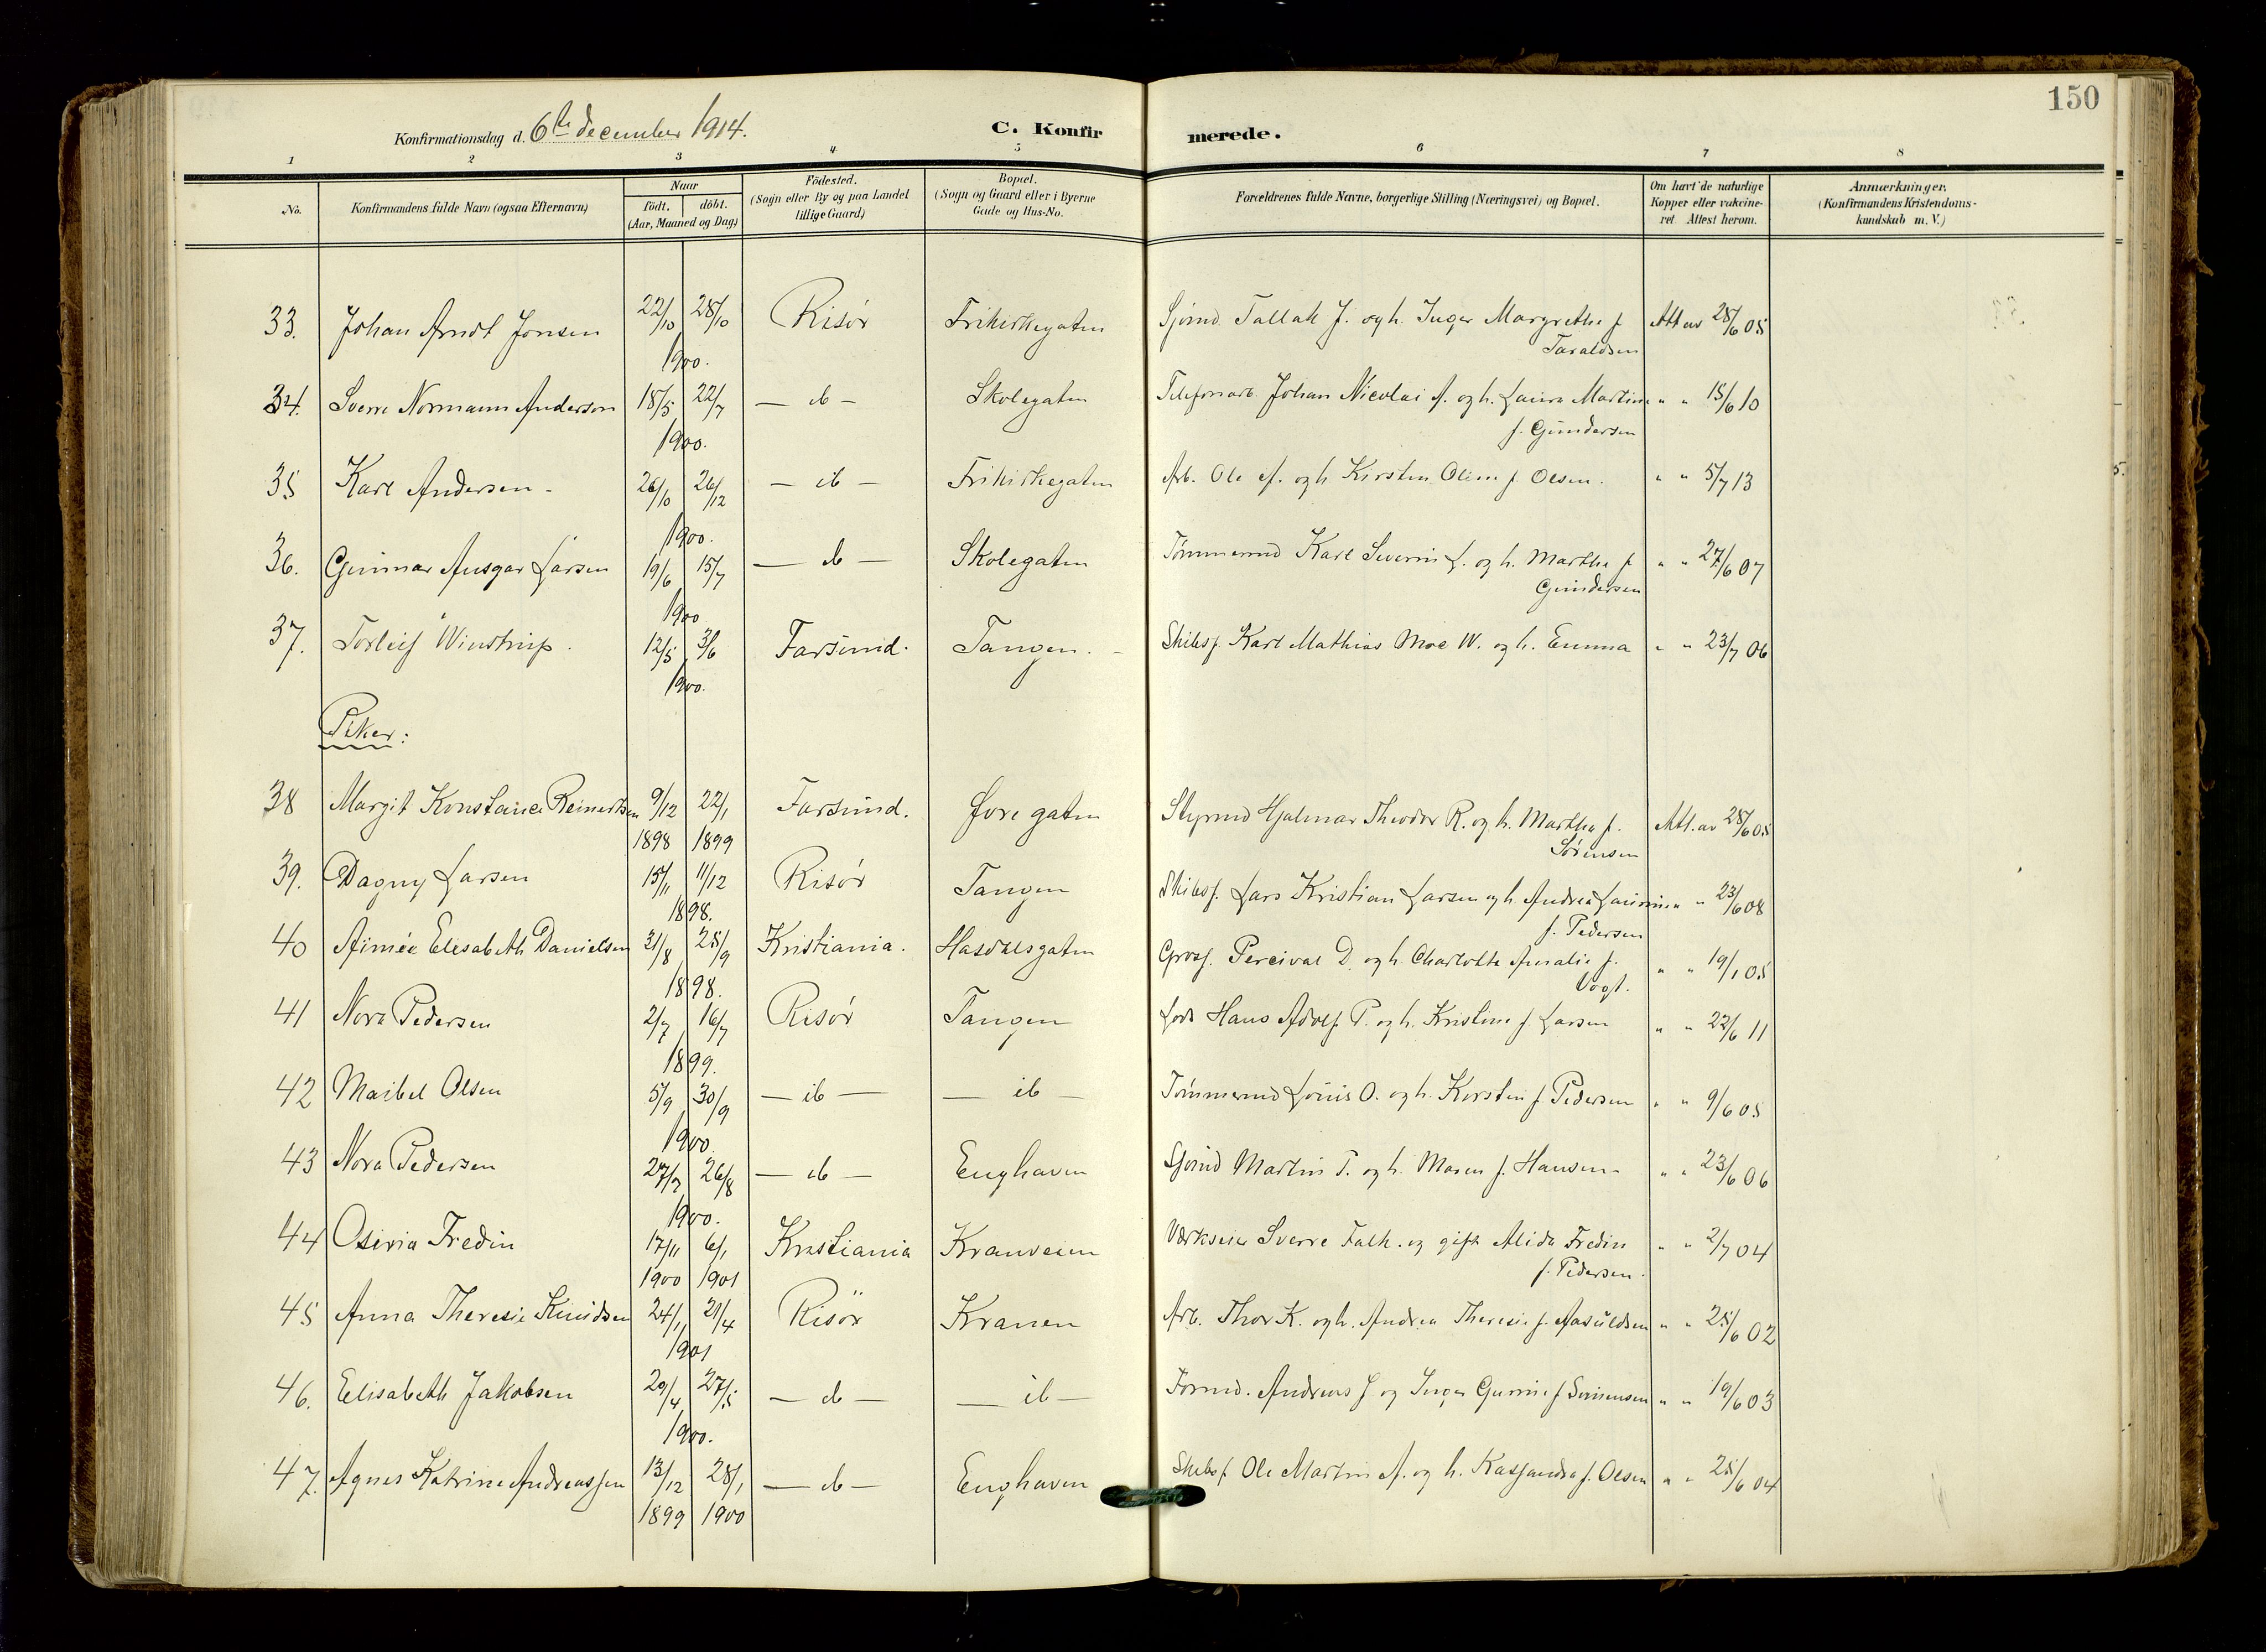 150
Konfirmationsdag d. 6te december 1914.
C. Konfir merede.
1 2 3 4 5 6 7 8
No.
Konfirmandens fulde Navn (ogsaa Efternavn)
Naar
födt. döbt.
(Aar, Maaned og Dag)
Födested.
(Sogn eller By og paa Landet
tillige Gaard)
Bopæl.
(Sogn og Gaard eller i Byerne
Gade og Hus-No.
Forældrenes fulde Navne, borgerlige Stilling (Næringsvei) og Bopæl.
Om havt de naturlige
Kopper eller vakcine-
ret. Attest herom.
Anmærkninger.
(Konfirmandens Kristendoms-
kundskab m. V.)
33. Johan Arndt Jonsen 22/10 28/10 Risør Frikirkegaten Sjømd. Tallak J. og h. Inger Margrethe f. Att av 28/6 05
1900. Taraldsen
34. Sverre Normann Anderson 18/5 22/7 — ib — Skolegaten Telefonarb. Johan Nicolai A. og h. Laura Martine " " 15/6 10
1900. f. Gundersen
35 Karl Andersen - 26/10 26/12 — ib — Frikirkegaten Arb. Ole A. og h. Kirsten Oline f. Olsen. " " 5/7 13
1900.
36. Gunnar Ansgar Larsen 19/6 15/7 — ib — Skolegaten Tømmermd Karl Severin L. og h. Marthe f. " " 27/6 07
1900 Gundersen
37. Torleif Winstrup. 12/5 3/6 Farsund. Tangen. Skibsf. Karl Mathias Moe W. og h. Emma " " 23/7 06
1900.
Piker:
38 Margit Konstance Reinertsen 9/12 22/1 Farsund. Øvregaten Styrmd Hjalmar Theodor R. og h. Marthe f. Att. av 28/6 05
1898 1899 Sørensen
39. Dagny Larsen 15/11 11/12 Risør Tangen Skibsf. Lars Kristian Larsen og h. Andrea Laurine " " 23/6 08
1898. f. Pedersen
40 Aimée Elisabeth Danielsen 31/8 25/9 Kristiania. Hasdalsgaten Grosf. Percival D. og h. Charlotte Amalie f. " " 19/1 05
1898. Vogt.
41 Nora Pedersen 2/7 16/7 Risør Tangen Lods Hans Adolf P. og h. Kristine f. Larsen " " 22/6 11
1899.
42 Maibel Olsen 5/9 30/9 — ib — — ib — Tømmermd Louis O. og h. Kirsten f. Pedersen " " 9/6 05
1900.
43 Nora Pedersen 27/7 26/8 — ib — Enghaven Sjømd Martin P. og h. Maren f. Hansen - " " 23/6 06
1900.
44 Osiria Fredin 17/11 6/1 Kristiania Kranveien Værkseier Sverre Falk. og gift Alida Fredin " " 2/7 04
1900 1901 f. Pedersen.
45 Anna Theresie Knudsen 24/1 21/4 Risör Kranen Arb. Thor K. og h. Andrea Theresie f. Aasuldsen " " 25/6 02
1901
46. Elisabeth Jakobsen 20/4 27/5 — ib — — ib — Formd. Andreas J. og Inger Gurine f. Simensen " " 19/6 03
1900.
47. Agnes Katrine Andreassen 13/12 28/1 — ib — Enghaven Skibsf. Ole Martin A. og h. Kassandra f. Olsen " " 25/6 04
1899 1900